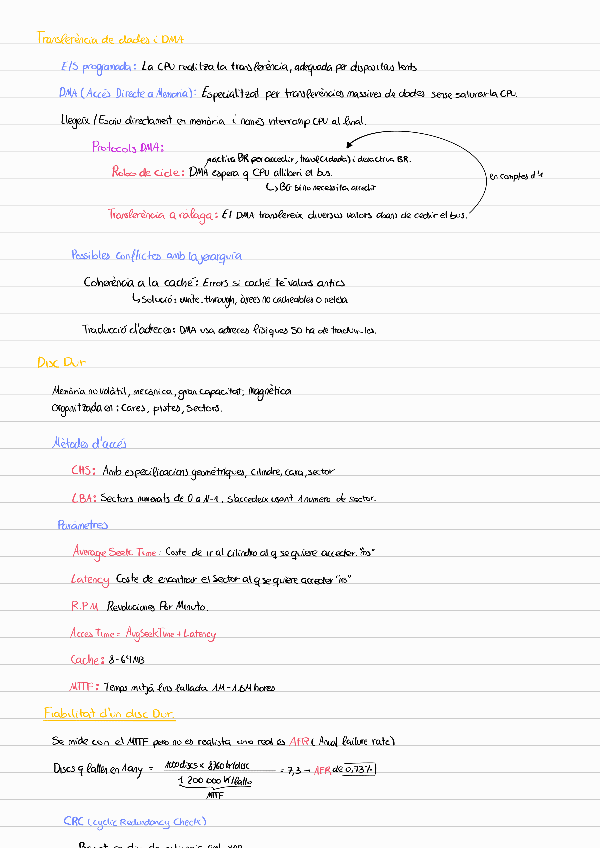 Transferència de dades i DMA
E/S programada: La CPU realitza la transferència, adequada per dispositius lents
DMA (Accés Directe a Memoria): Especialitzat per transferències massives de dades sense saturar la CPU.
Llegeix/Escriu directament en memòria i només interromp CPU al final.
Protocols DMA:
activa BR per accedir, transf(1 dada) i desactiva BR.
Robo de cicle: DMA espera q CPU alliberi el bus.
↳ BG si no necessita accedir
en comptes d'1
Transferència a ràfaga: El DMA transfereix diversos valors abans de cedir el bus.
Possibles conflictes amb la jerarquia
Coherència a la caché: Errors si caché té valors antics
↳ Solució: write-through, àrees no cacheables o neteja
Traducció d'adreces: DMA usa adreces físiques SO ha de traduir-les.
Disc Dur
Memòria no volàtil, mecànica, gran capacitat, magnètica
organitzada en: Cares, pistes, sectors.
Mètodes d'accés
CHS: Amb especificacions geomètriques, cilindre, cara, sector
LBA: Sectors numerats de 0 a N-1, s'accedeix usant 1 numero de sector.
Parametres
Average Seek Time: Coste de ir al cilindro al q se quiere acceder. "ms"
Latency Coste de encontrar el sector al q se quiere acceder "ms"
R.P.M Revoluciones Por Minuto.
Acces Time = AvgSeekTime + Latency
Cache: 8-64MB
MTTF: Temps mitjà fins fallada 1M-1.6M hores
Fiabilitat d'un disc Dur
Se mide con el MTTF pero no es realista una real es AFR (Anual failure rate)
Discs q fallen en 1 any = 1000 discs x 8760 h/disc / 1 200 000 h/fallo = 7,3 → AFR de 0,73%
MTTF
CRC (Cyclic Redundancy Check)